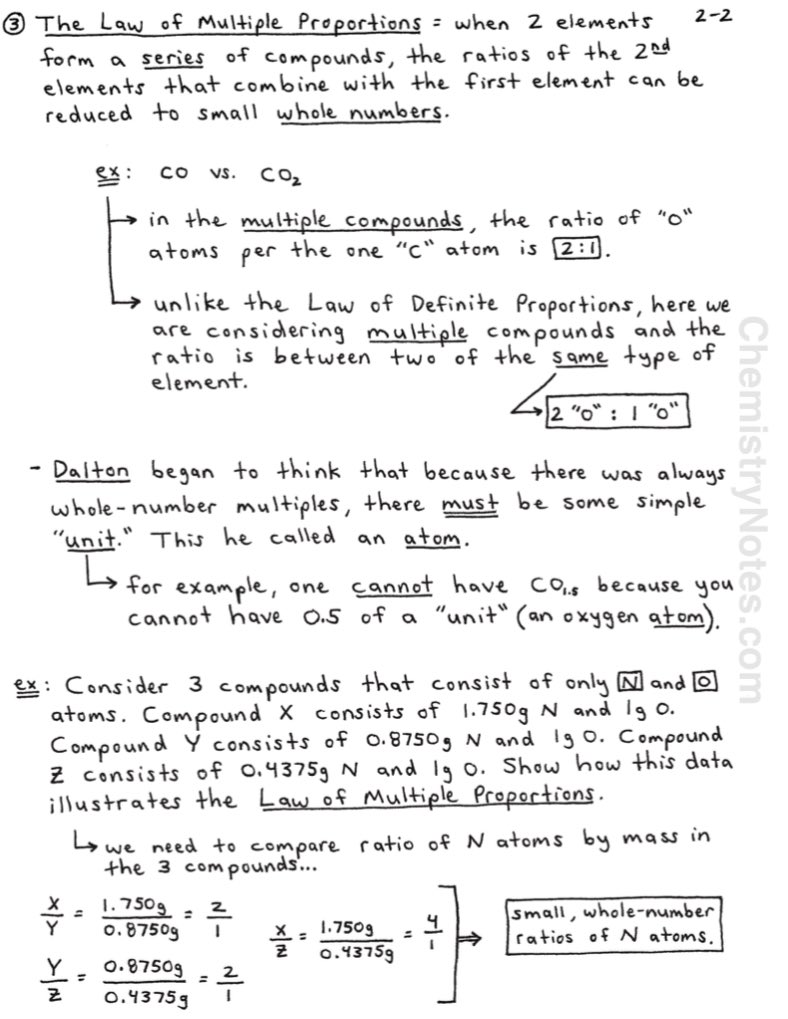 ③ The Law of Multiple Proportions = when 2 elements 2-2
form a series of compounds, the ratios of the 2nd
elements that combine with the first element can be
reduced to small whole numbers.
ex: CO vs. CO₂
→ in the multiple compounds, the ratio of "O"
atoms per the one "C" atom is 2:1.
→ unlike the Law of Definite Proportions, here we
are considering multiple compounds and the
ratio is between two of the same type of
element.
→ 2 "O" : 1 "O"
- Dalton began to think that because there was always
whole-number multiples, there must be some simple
"unit." This he called an atom.
→ for example, one cannot have CO₁.₅ because you
cannot have 0.5 of a "unit" (an oxygen atom).
ex: Consider 3 compounds that consist of only N and O
atoms. Compound X consists of 1.750g N and 1g O.
Compound Y consists of 0.8750g N and 1g O. Compound
Z consists of 0.4375g N and 1g O. Show how this data
illustrates the Law of Multiple Proportions.
↳ we need to compare ratio of N atoms by mass in
the 3 compounds...
X/Y = 1.750g/0.8750g = 2/1
Y/Z = 0.8750g/0.4375g = 2/1
X/Z = 1.750g/0.4375g = 4/1
⇒ small, whole-number
ratios of N atoms.
ChemistryNotes.com